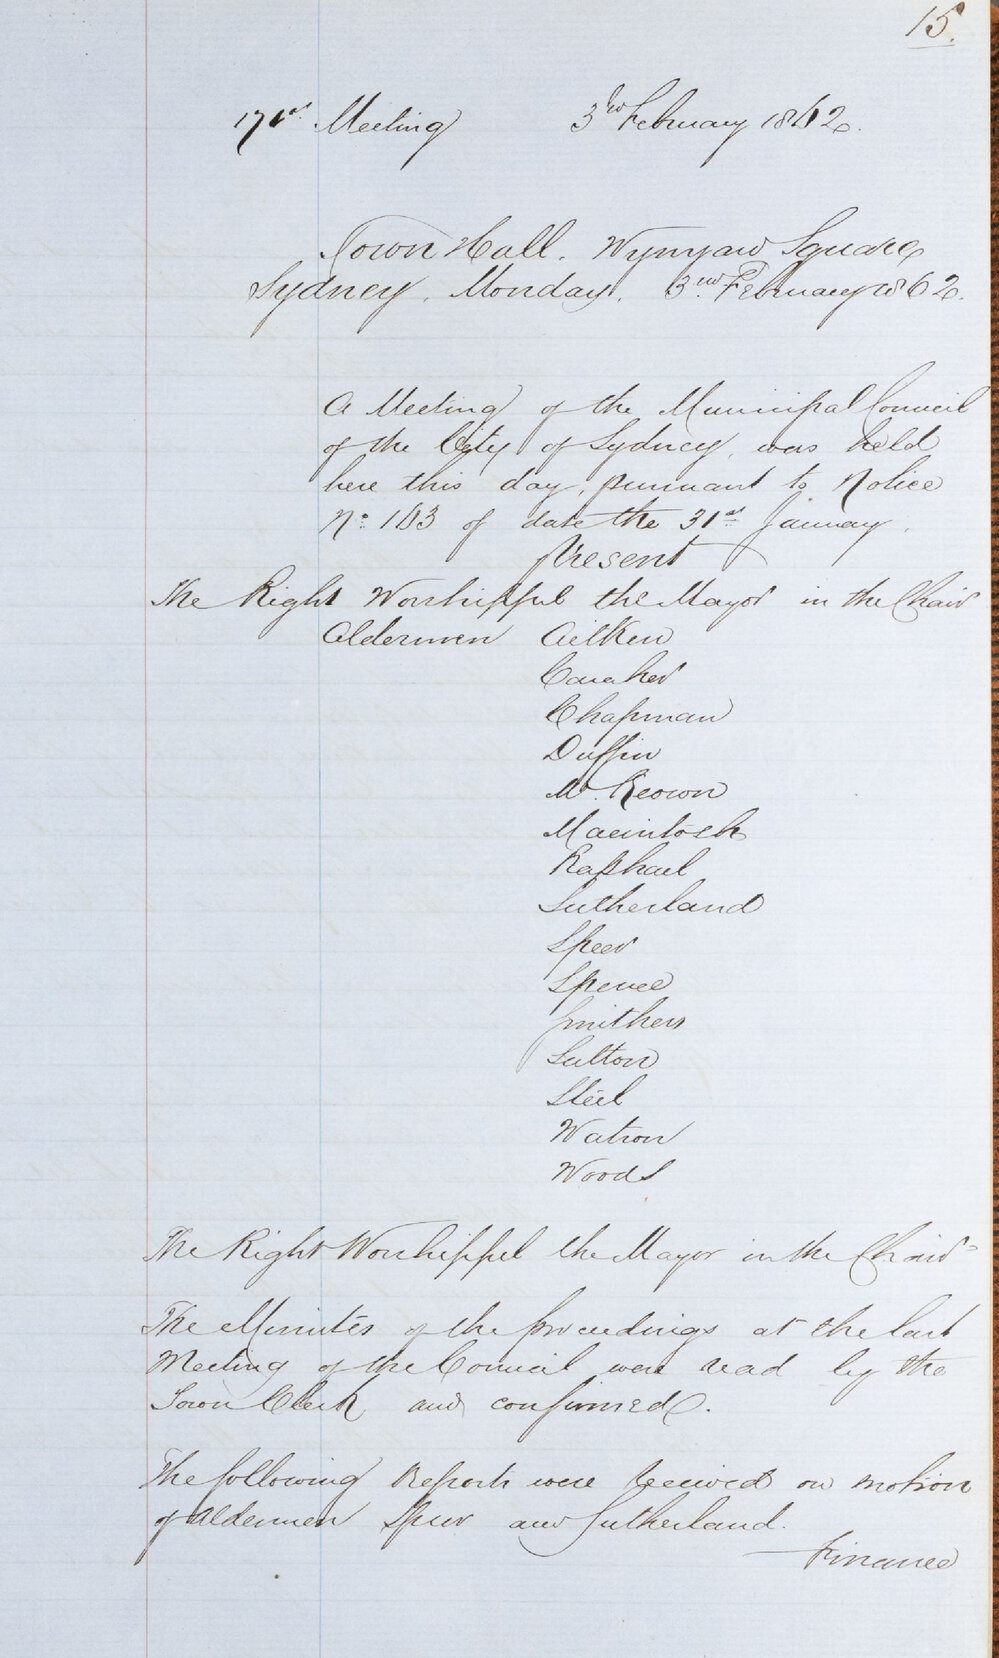 15.
171st Meeting 3rd February 1862.
Town Hall. Wynyard Square
Sydney. Monday. 3rd February 1862.
A Meeting of the Municipal Council
of the City of Sydney, was held
here this day, pursuant to Notice
No. 103 of date the 31st January.
Present
The Right Worshipful the Mayor in the Chair
Aldermen Aitken
Caraher
Chapman
Duffin
Mc.Keown
Macintosh
Raphael
Sutherland
Speer
Spence
Smithers
Sutton
Steel
Watson
Woods
The Right Worshipful the Mayor in the Chair
The Minutes of the proceedings at the last
Meeting of the Council were read by the
Town Clerk and confirmed.
The following Reports were received on motion
of Aldermen Speer and Sutherland.
Finance